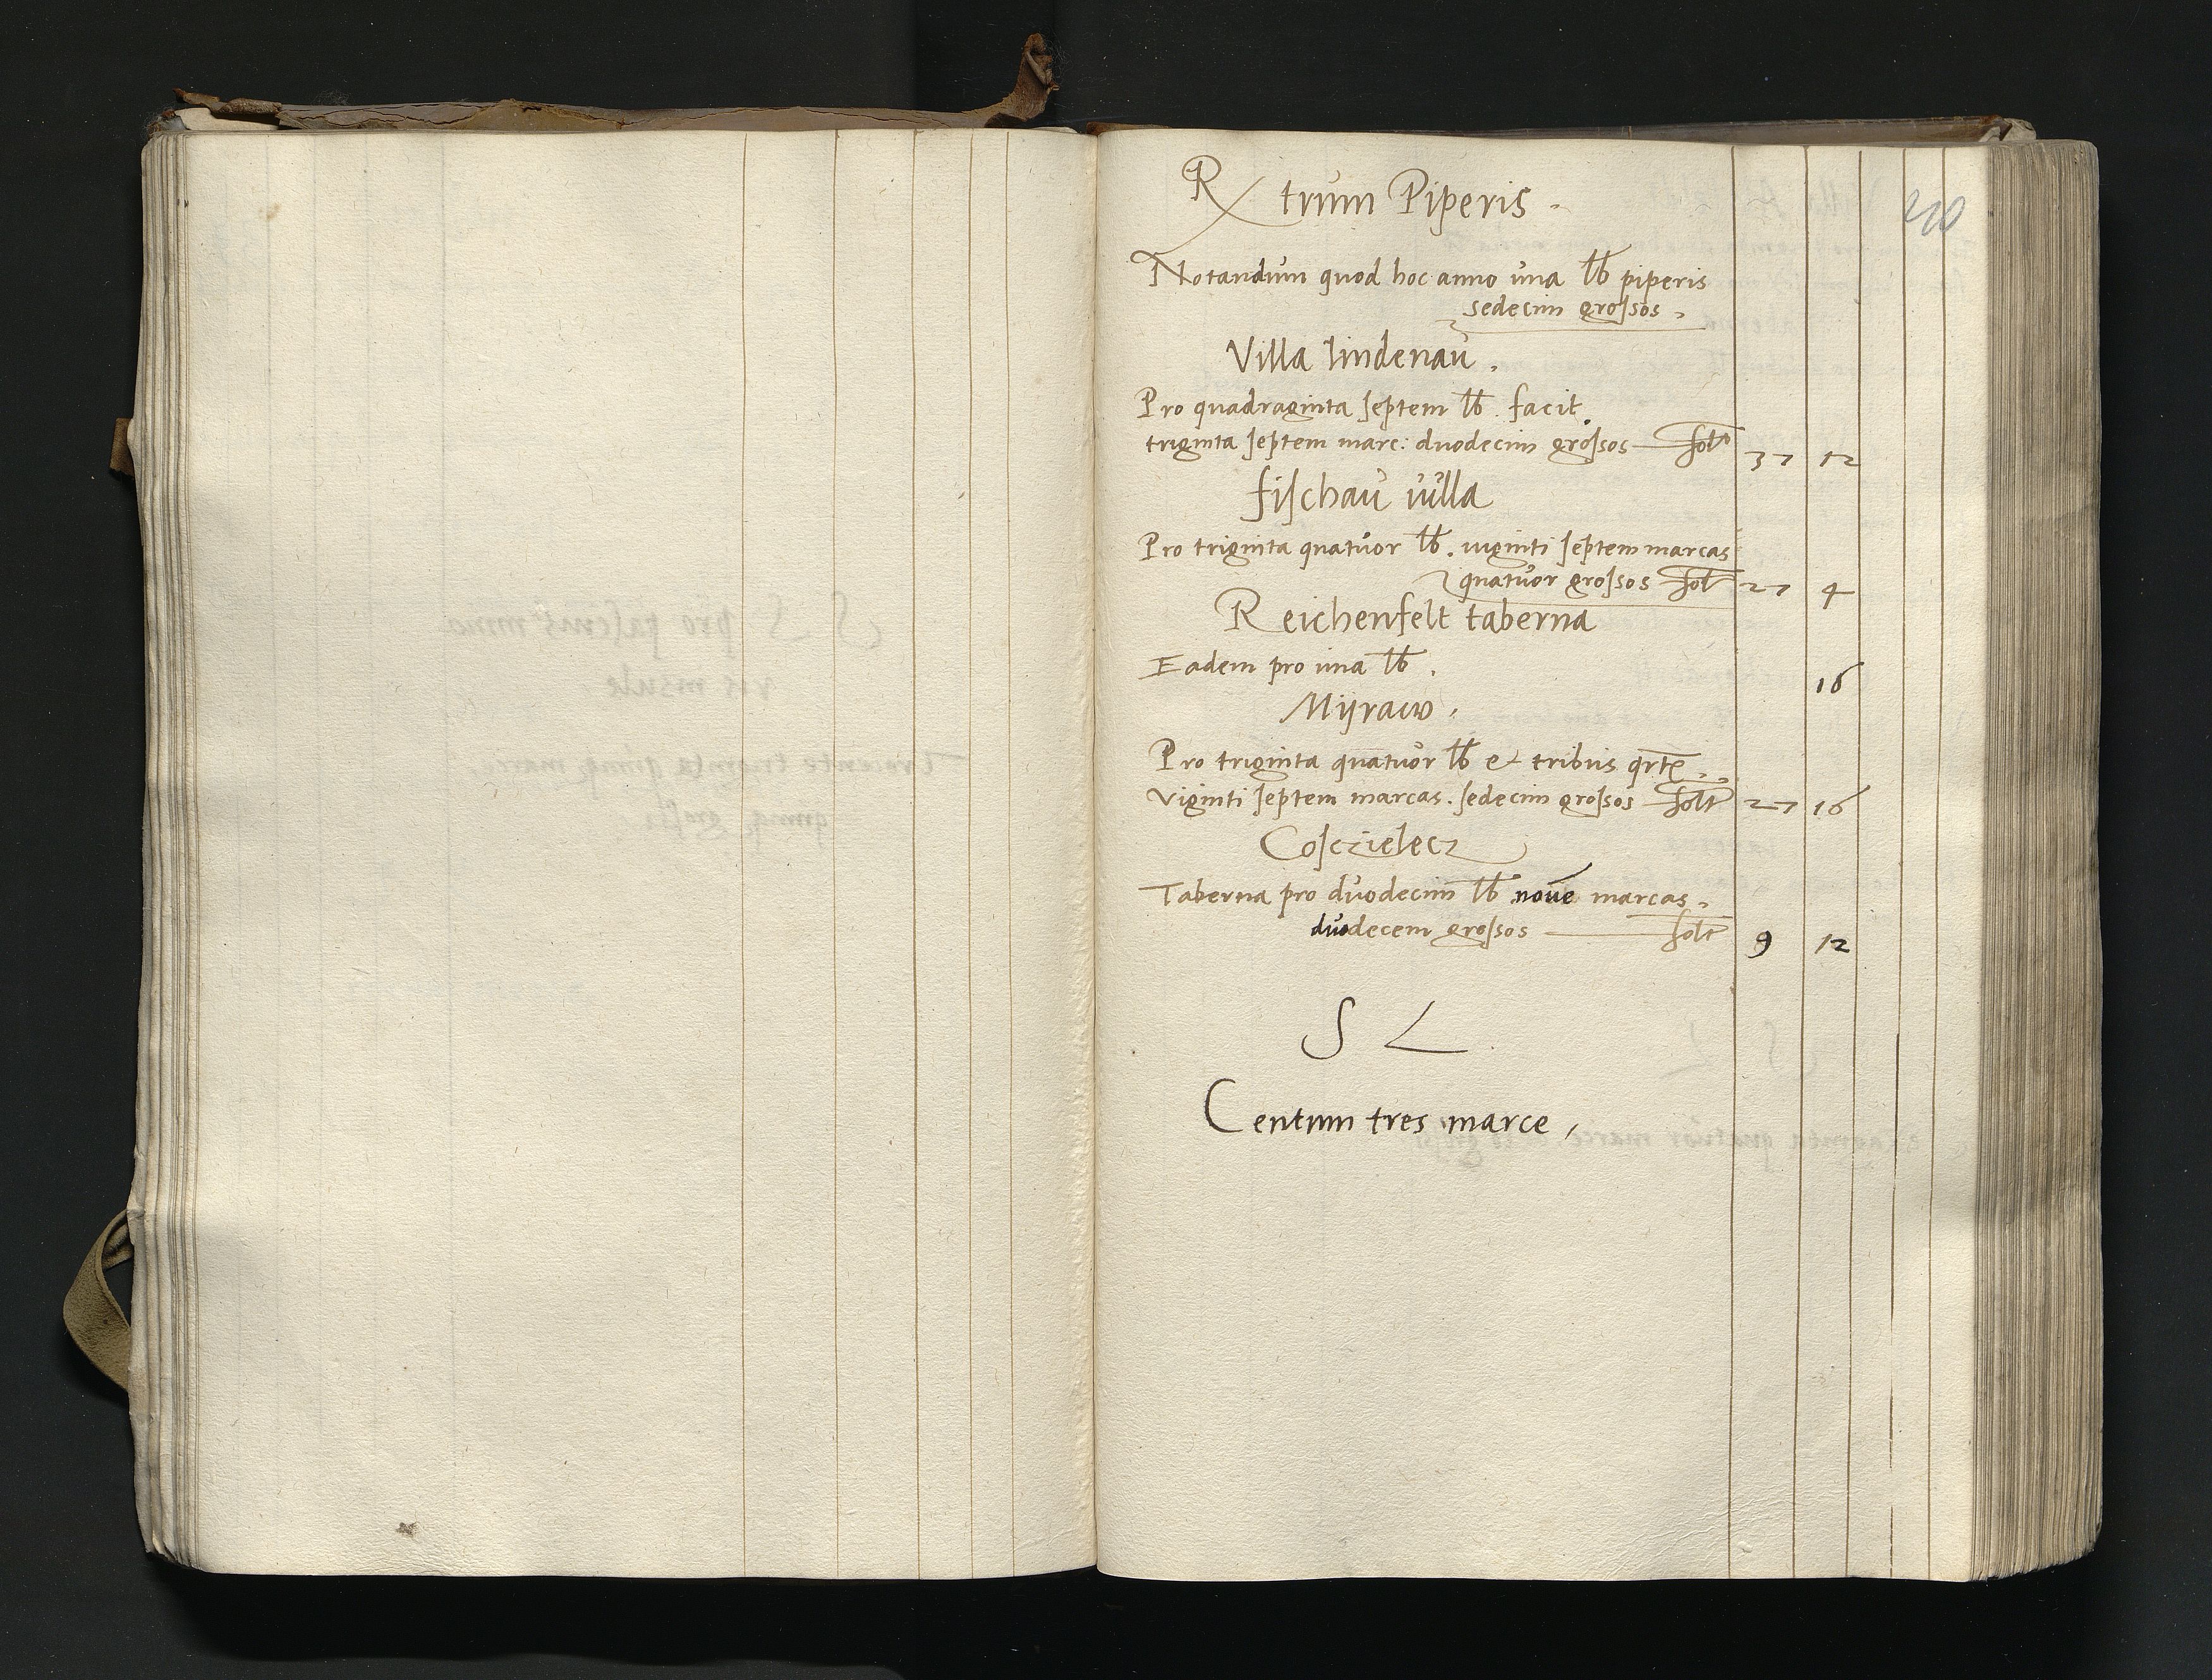 R trum Piperis.
210
Notandum quod hoc anno una lb piperis
sedecim grossos.
Villa lindenau.
Pro quadraginta septem lb. facit.
triginta septem marc: duodecim grossos solt 37 12
fischau villa
Pro triginta quatuor lb. viginti septem marcas
quatuor grossos solt 27 4
Reichenfelt taberna
Eadem pro una lb. 16
Mijraw.
Pro triginta quatuor lb et tribus qrt.
viginti septem marcas. sedecim grossos solt 27 16
Cosczielecz
Taberna pro duodecim lb nove marcas.
duodecem grossos solt 9 12
S L
Centum tres marce,